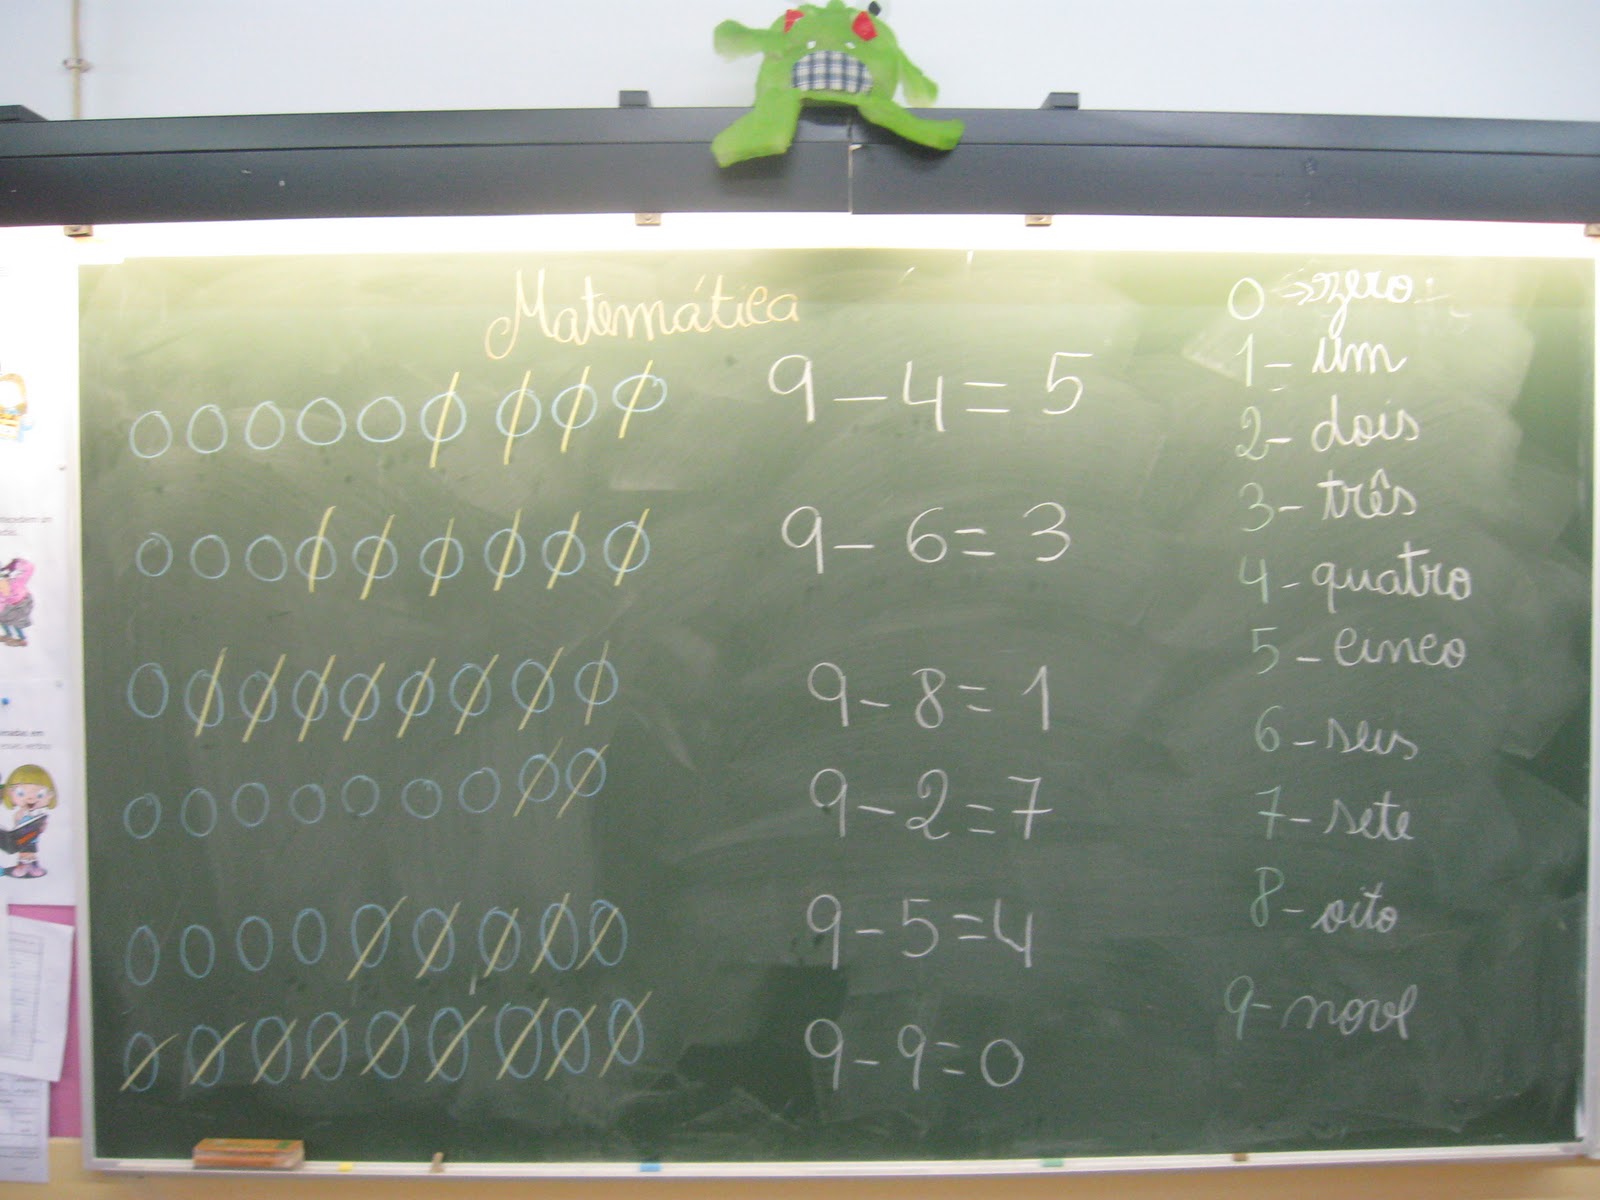 Matemática
9 – 4 = 5
9 – 6 = 3
9 – 8 = 1
9 – 2 = 7
9 – 5 = 4
9 – 9 = 0
0 → zero
1 – um
2 – dois
3 – três
4 – quatro
5 – cinco
6 – seis
7 – sete
8 – oito
9 – nove